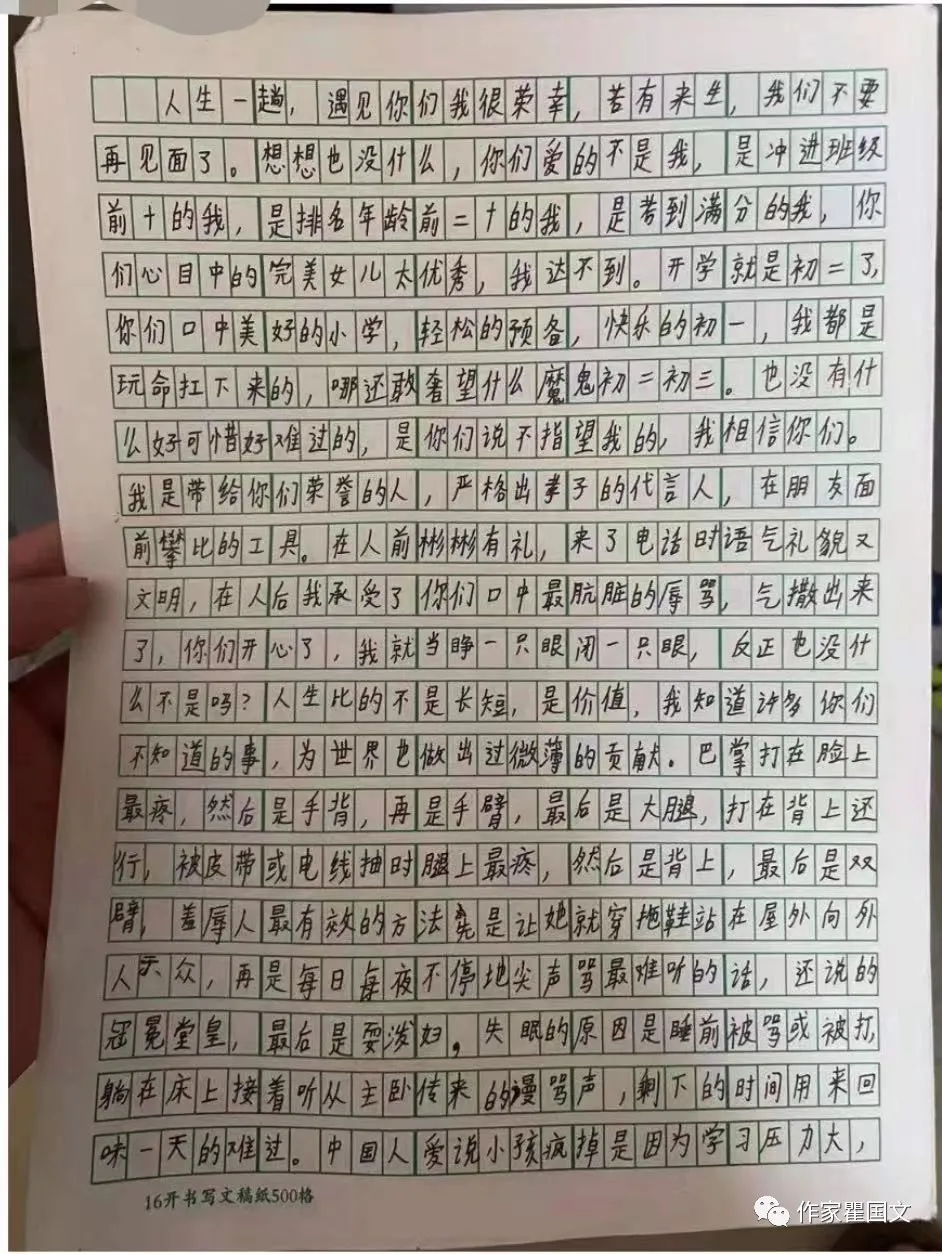 人生一趟，遇见你们我很荣幸，苦有来生，我们不要
再见面了。想想也没什么，你们爱的不是我，是冲进班级
前十的我，是排名年龄前二十的我，是考到满分的我，你
们心目中的完美女儿太优秀，我达不到。开学就是初二了，
你们口中美好的小学，轻松的预备，快乐的初一，我都是
玩命扛下来的，哪还敢奢望什么魔鬼初二初三。也没有什
么好可惜好难过的，是你们说不指望我的，我相信你们。
我是带给你们荣誉的人，严格出孝子的代言人，在朋友面
前攀比的工具。在人前彬彬有礼，来了电话时语气礼貌又
文明，在人后我承受了你们口中最肮脏的辱骂，气撒出来
了，你们开心了，我就当睁一只眼闭一只眼，反正也没什
么不是吗？人生比的不是长短，是价值，我知道许多你们
不知道的事，为世界也做出过微薄的贡献。巴掌打在脸上
最疼，然后是手背，再是手臂，最后是大腿，打在背上还
行，被皮带或电线抽时腿上最疼，然后是背上，最后是双
臂，羞辱人最有效的方法是让她就穿拖鞋站在屋外向外
人示众，再是每日每夜不停地尖声骂最难听的话，还说的
冠冕堂皇，最后是耍泼妇。失眠的原因是睡前被骂或被打，
躺在床上接着听从主卧传来的谩骂声，剩下的时间用来回
味一天的难过。中国人爱说小孩疯掉是因为学习压力大，
16开书写文稿纸500格
作家瞿国文